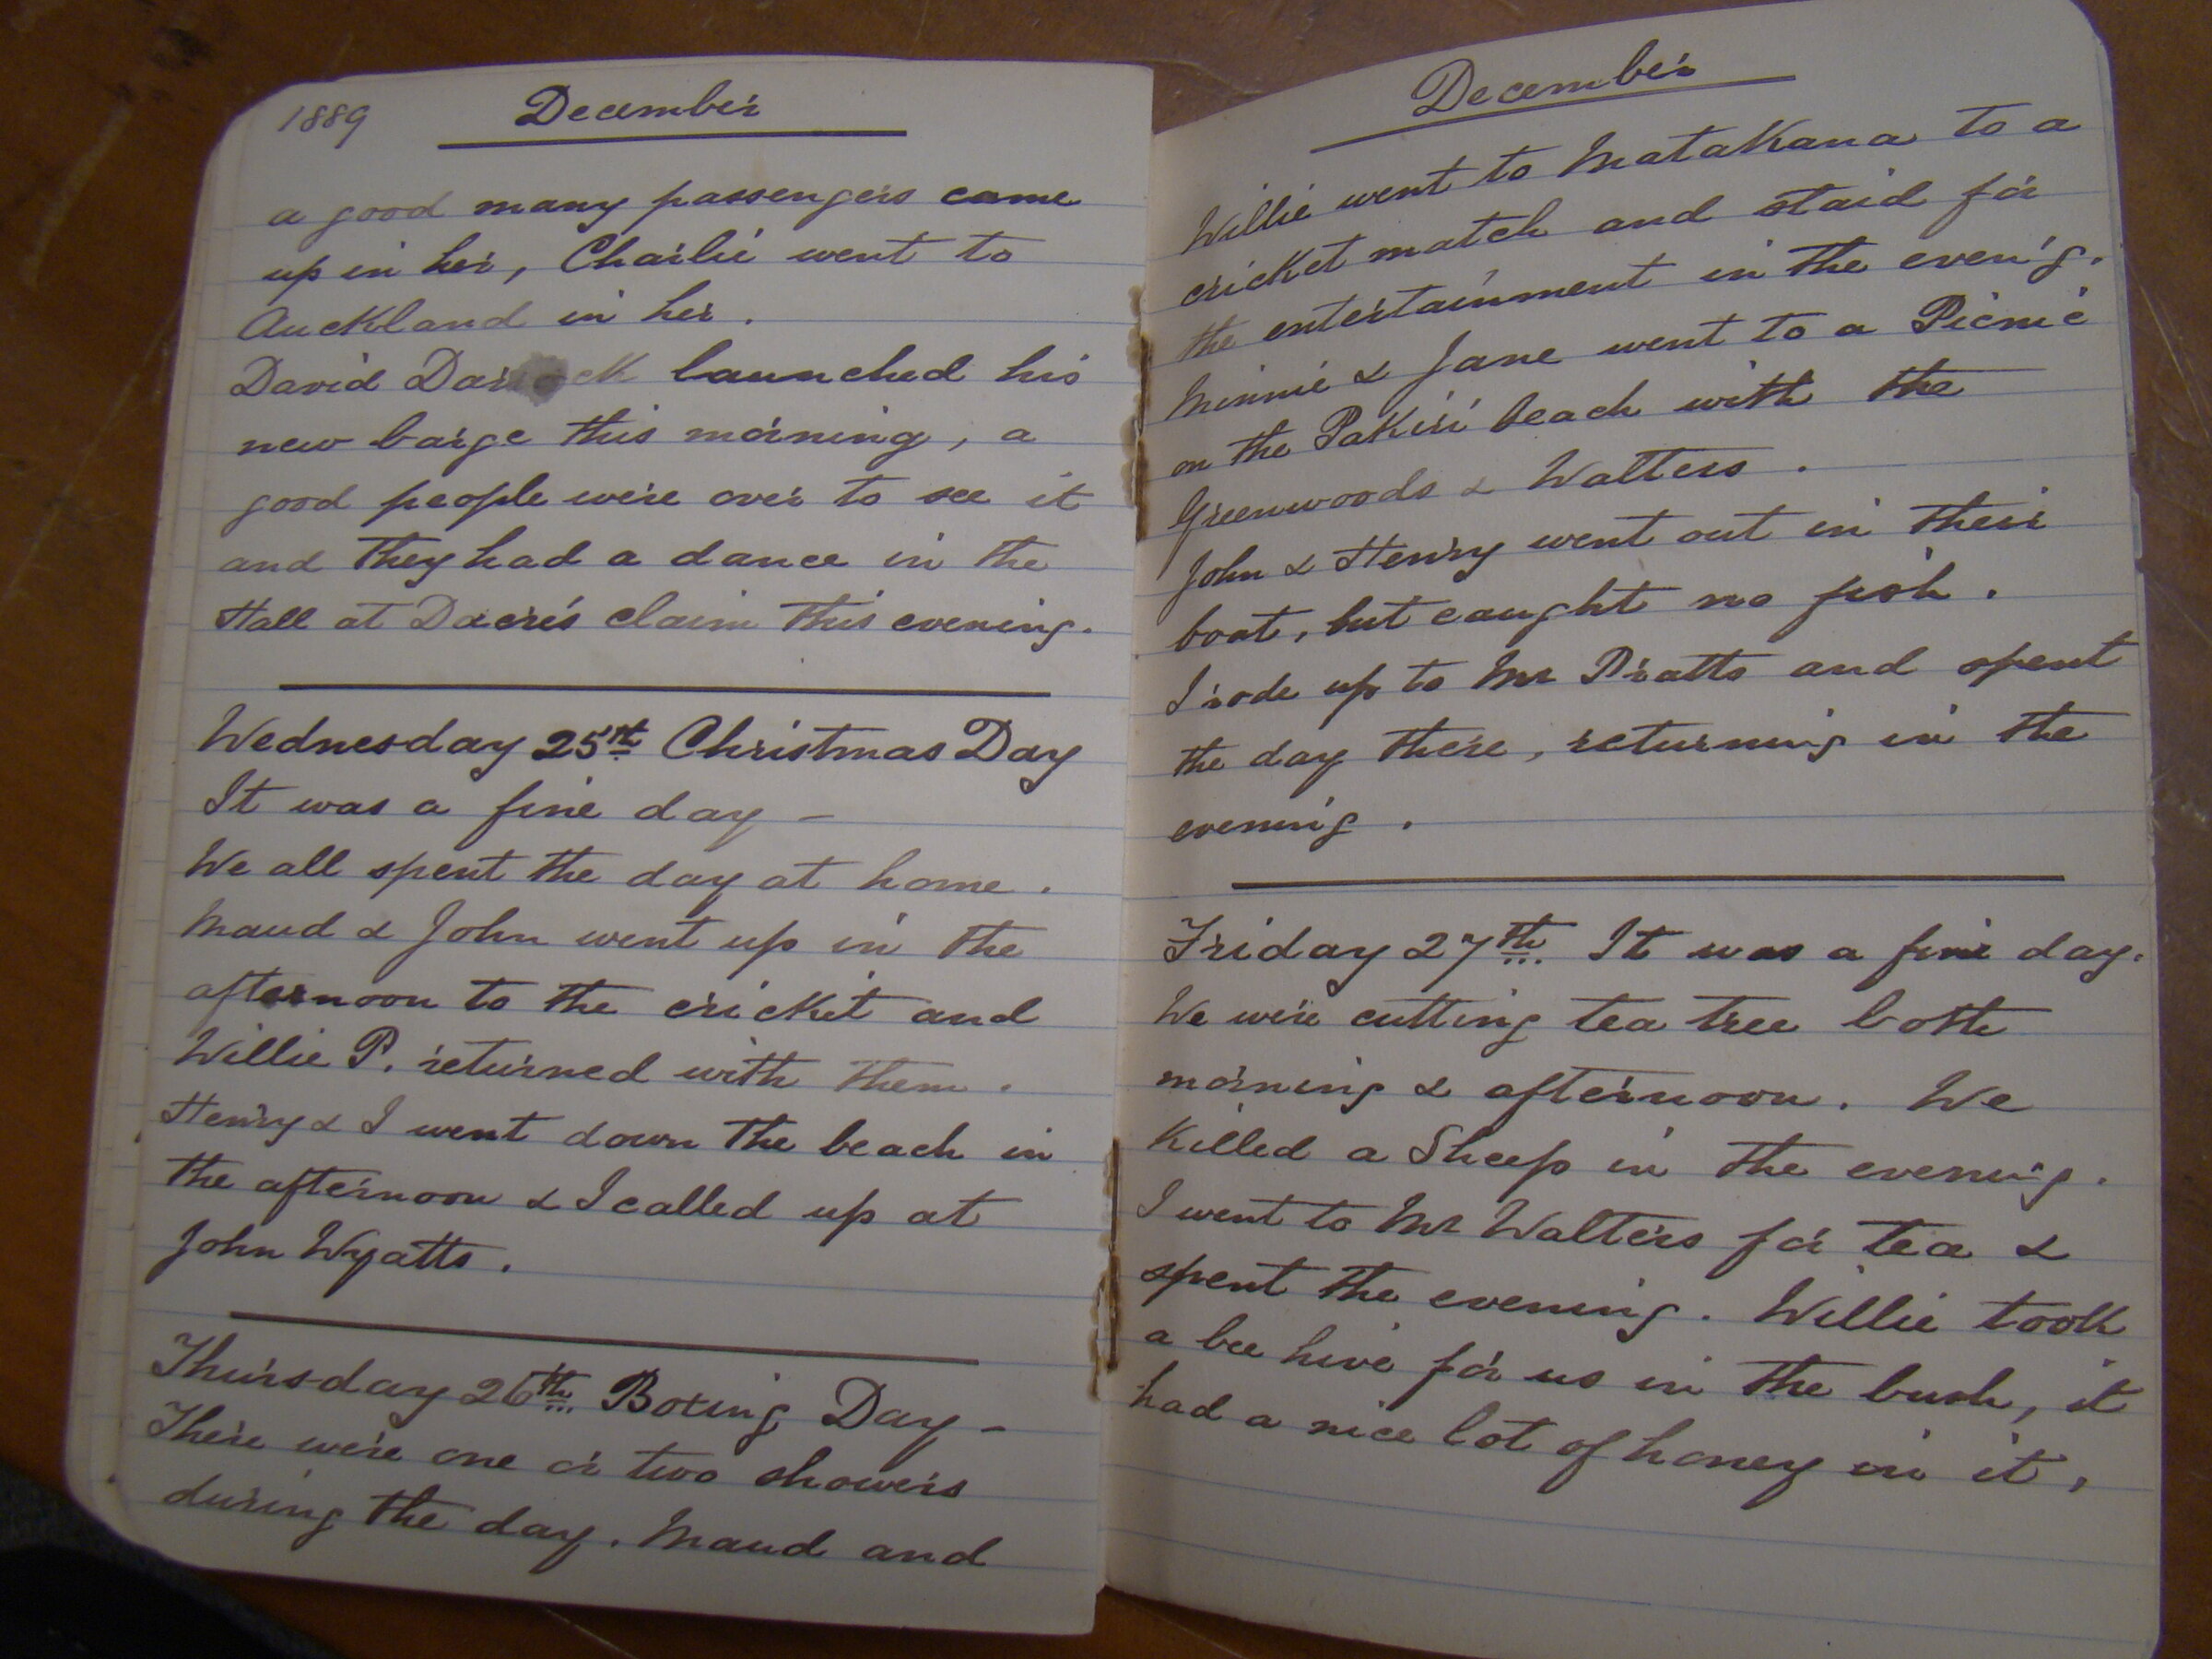 1889 December
a good many passengers came
up in her, Charlie went to
Auckland in her.
David Darrock launched his
new barge this morning, a
good people were over to see it
and they had a dance in the
Hall at Dacre's claim this evening.
Wednesday 25th Christmas Day
It was a fine day -
We all spent the day at home.
Maud & John went up in the
afternoon to the cricket and
Willie P. returned with them.
Henry & I went down the beach in
the afternoon & I called up at
John Wyatts.
Thursday 26th Boxing Day -
There were one or two showers
during the day. Maud and
December
Willie went to Matakana to a
cricket match and staid for
the entertainment in the even'g.
Minnie & Jane went to a Picnic
on the Pakiri beach with the
Greenwoods & Walters.
John & Henry went out in their
boat, but caught no fish.
I rode up to Mr Pratts and spent
the day there, returning in the
evening.
Friday 27th. It was a fine day.
We were cutting tea tree both
morning & afternoon. We
killed a Sheep in the evening.
I went to Mr Walters for tea &
spent the evening. Willie took
a bee hive for us in the bush, it
had a nice lot of honey in it,